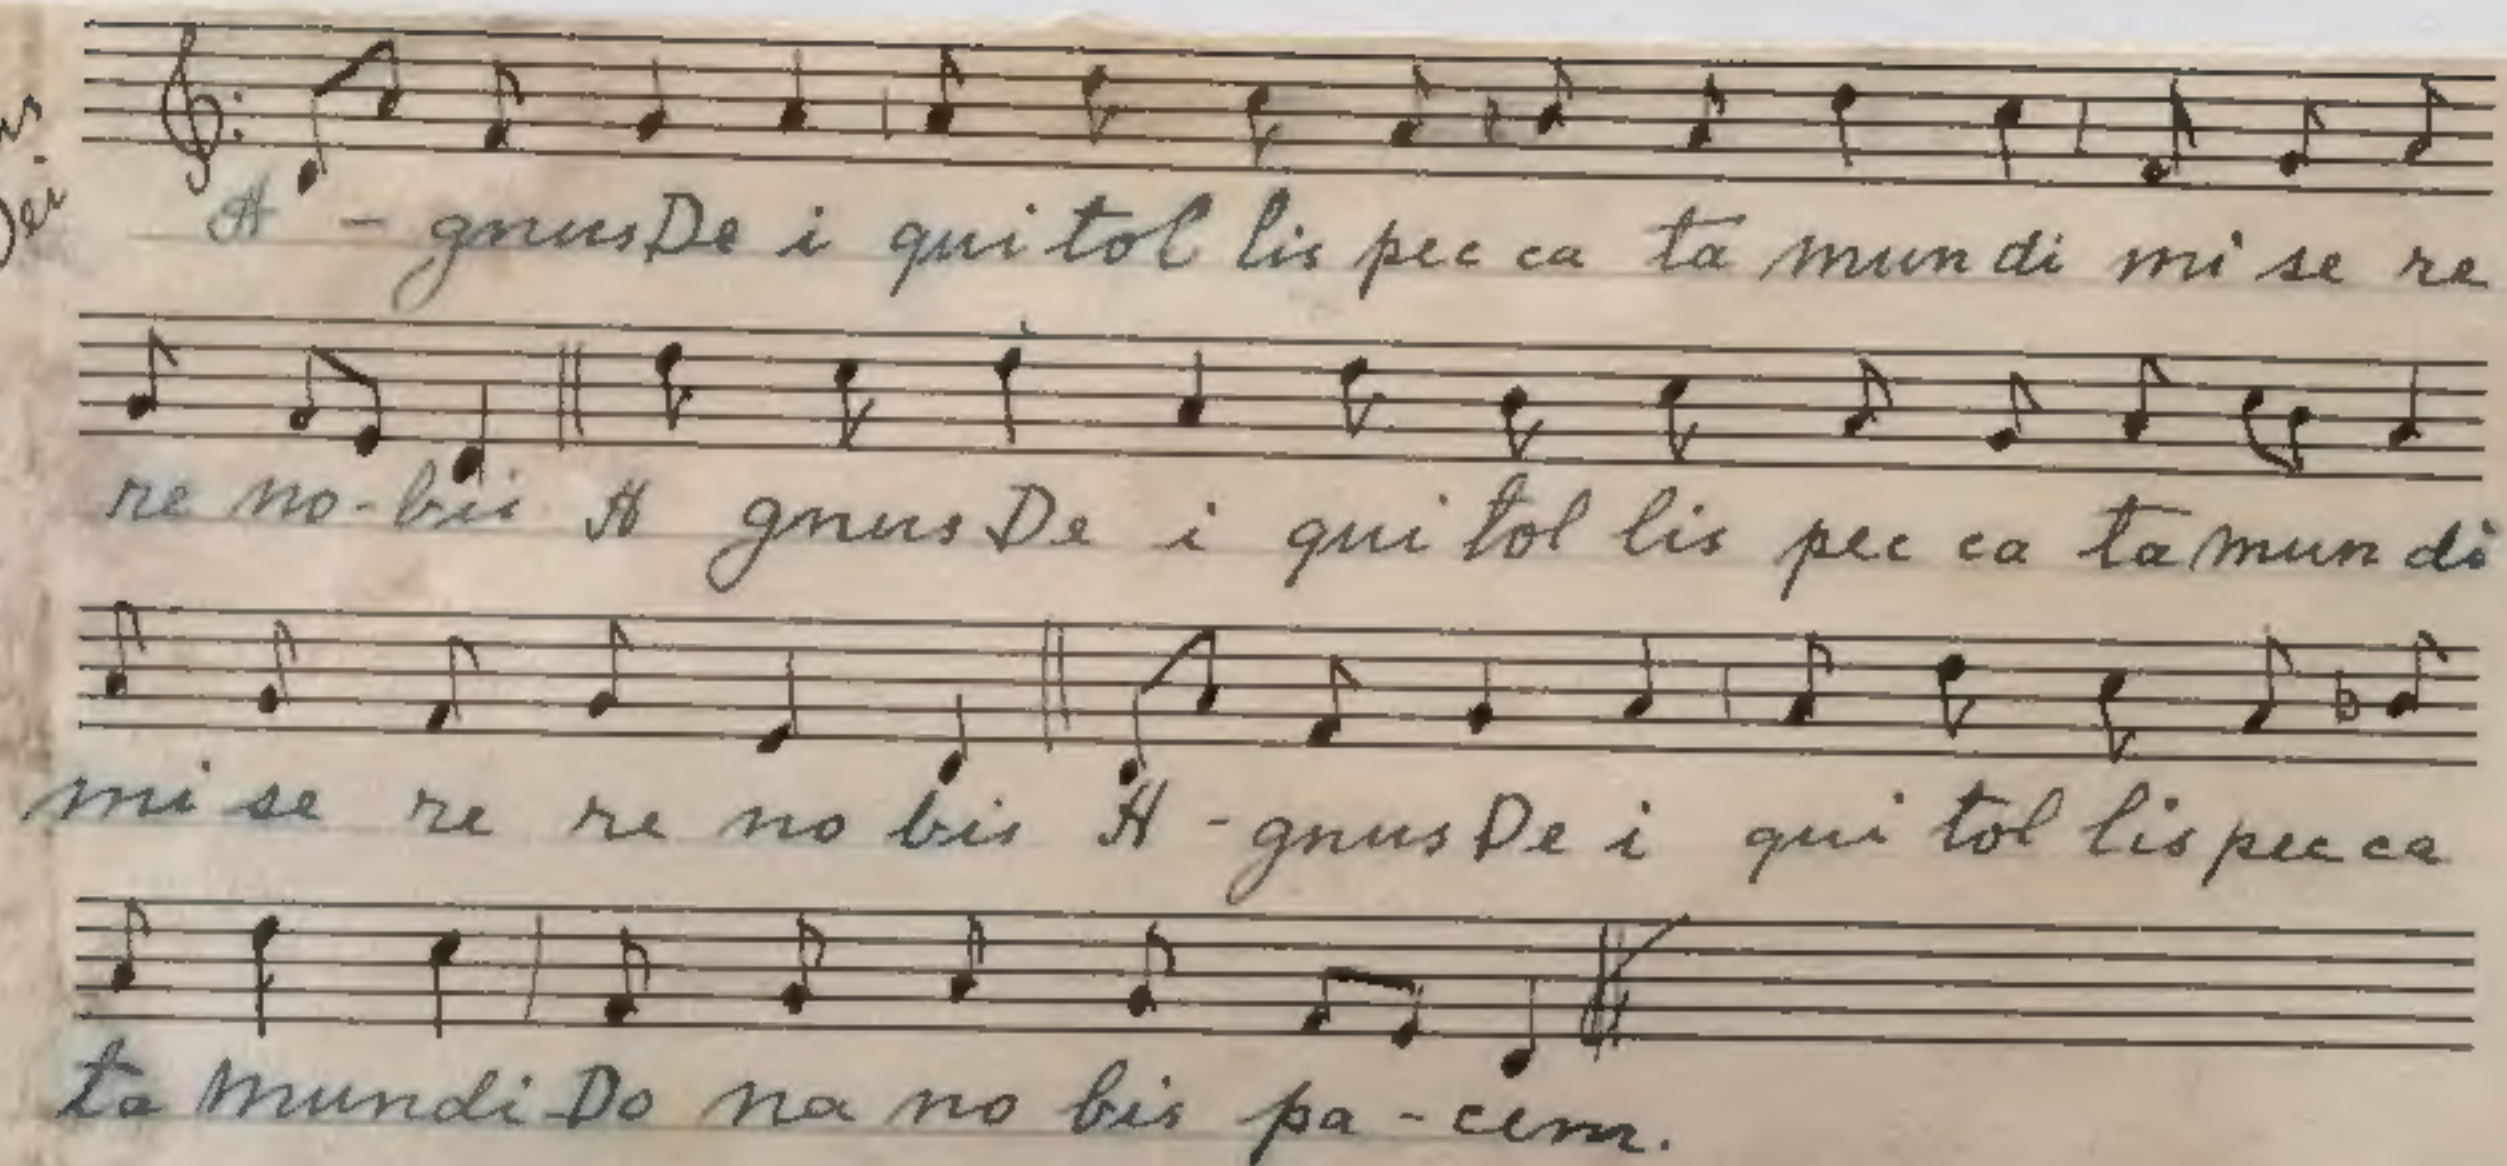 Dei
A - gnus De i qui tol lis pec ca ta mun di mi se re
re no-bis A gnus De i qui tol lis pec ca ta mun di
mi se re re no bis A - gnus De i qui tol lis pec ca
ta mundi Do na no bis pa - cem.